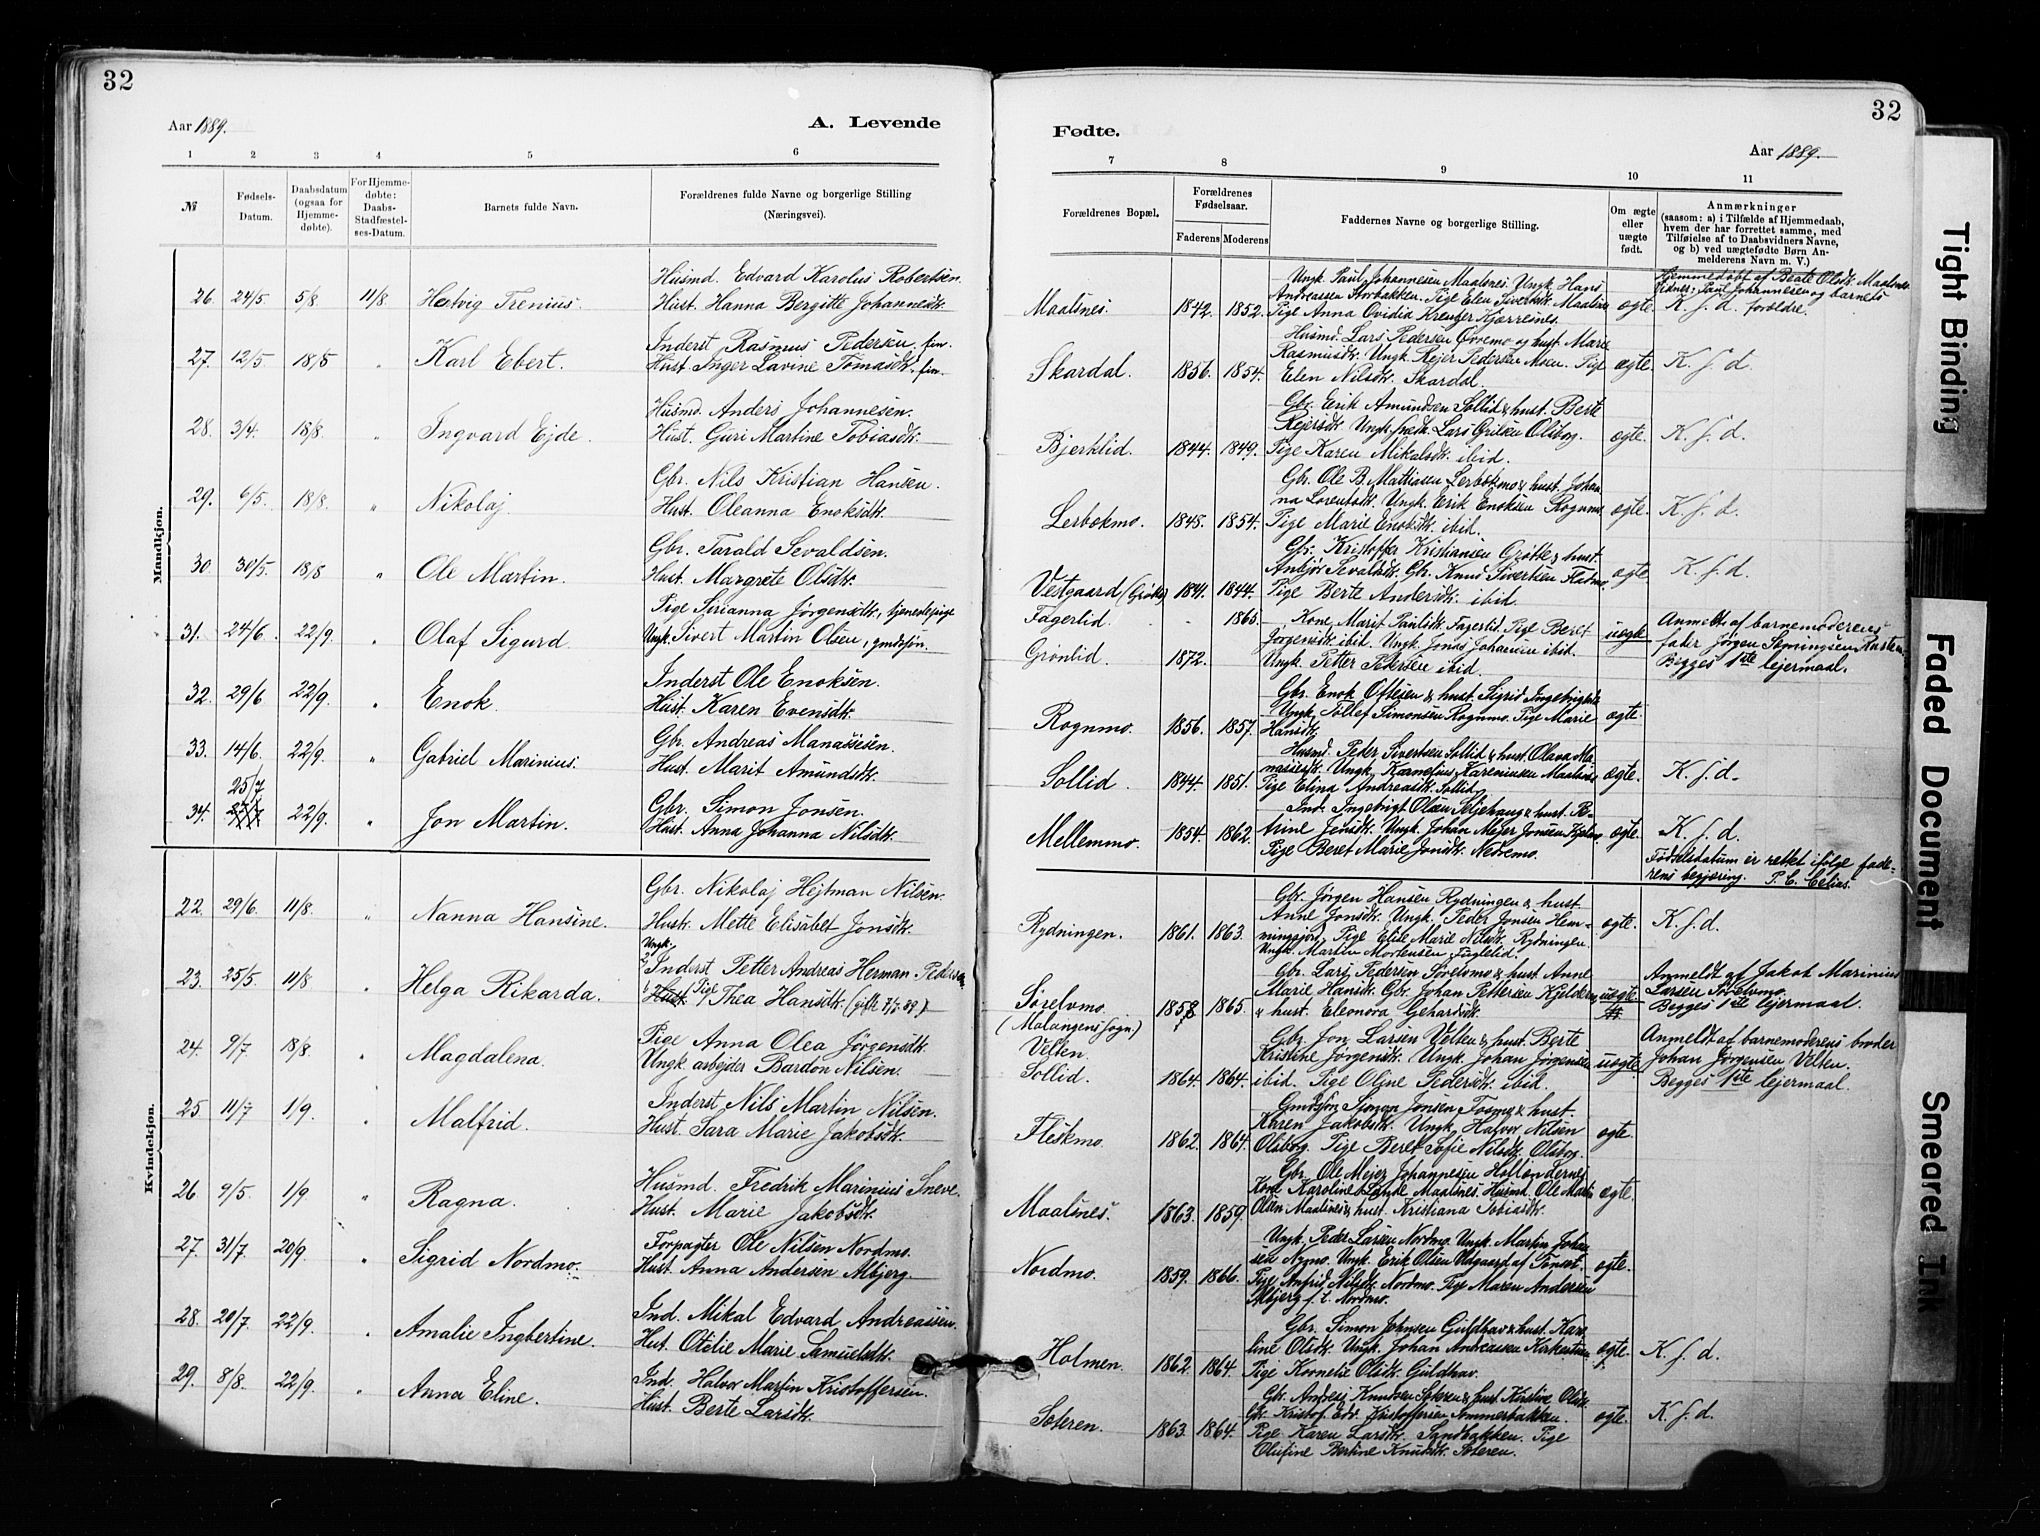 32
Aar 1889.
A. Levende
1 2 3 4 5 6
№
Fødsels-Datum.
Daabsdatum (ogsaa for Hjemmedøbte).
For Hjemmedøbte: Daabs-Stadfæstelses-Datum.
Barnets fulde Navn.
Forældrenes fulde Navne og borgerlige Stilling (Næringsvei).
Mandkjøn.
Husmd. Edvard Karolus Robertsen.
26. 24/5 5/8 11/8 Hartvig Trenius. Hust. Hanna Bergitte Johannesdt.
Inderst Rasmus Pedersen, fin.
27. 12/5. 18/8 " Karl Ebert. Hust. Inger Lavine Tomasdt. fin.
Husmd. Anders Johannesen.
28. 3/4. 18/8. " Ingvard Ejde. Hust. Guri Martine Tobiasdt.
Gbr. Nils Kristian Hansen.
29. 6/5. 18/8. " Nikolaj. Hust. Oleanna Enoksdt.
Gbr. Tarald Sevaldsen.
30. 30/5. 18/8 " Ole Martin. Hust. Margrete Olsdt.
Pige Sirianna Jørgensdt., tjenestepige
31. 24/6. 22/9. " Olaf Sigurd. Ungk. Sivert Martin Olsen, gmdsøn.
Inderst Ole Enoksen.
32. 29/6 22/9. " Enok. Hust. Karen Evensdt.
Gbr. Andreas Manassesen.
33. 14/6. 22/9. " Gabriel Marinius. Hust. Marit Amundsdt.
25/7
Gbr. Simon Jonsen.
34. 22/9. " Jon Martin. Hust. Anna Johanna Nilsdt.
Kvindekjøn.
Gbr. Nikolaj Hejtman Nilsen.
22. 29/6. 11/8. " Nanna Hansine. Hust. Mette Elisabet Jonsdt.
Ungk.
Inderst Petter Andreas Herman Pedersen
23. 25/5. 11/8 " Helga Rikarda. Hust. Pige Thea Hansdt.
Pige Anna Olea Jørgensdt.
24. 9/7. 18/8. " Magdalena. Ungk. arbejder Bardon Nilsen.
Inderst Nils Martin Nilsen.
25 11/7 1/9. " Malfrid. Hust. Sara Marie Jakobsdt.
Husmd. Fredrik Marinius Sneve.
26 9/5. 1/9 " Ragna. Hust. Marie Jakobsdt.
Forpagter Ole Nilsen Nordmo.
27. 31/7 20/9. " Sigrid Nordmo. Hust. Anna Andersen Mbjerg.
Ind. Mikal Edvard Andreassen
28. 20/7. 22/9. " Amalie Ingbertine. Hust. Otelie Marie Samuelsdt.
Ind. Halvor Martin Kristoffersen.
29. 8/8. 22/9. " Anna Eline. Hust. Berte Larsdt.
Fødte.
32
Aar 1889.
7 8 9 10 11
Forældrenes Bopæl.
Forældrenes Fødselsaar.
Faderens Moderens
Faddernes Navne og borgerlige Stilling.
Om ægte eller uægte født.
Anmærkninger
(saasom: a) i Tilfælde af Hjemmedaab, hvem der har forrettet samme, med Tilføielse af to Daabsvidners Navne, og b) ved uægtefødte Børn Anmelderens Navn m. V.)
Ungk. Paul Johannesen Maalsnes. Ungk. Hans
Andreassen Storbakken. Pige Elen Sivertsdt. Maalsnes
Maalsnes. 1842. 1852. Pige Anna Ovidia Kreutzer Kjerresnes. ægte.
Hjemmedøbt af Beate Olsdt. Maalsnes
Vidner: Paul Johannesen og barnets
K. f. d. forældre.
Husmd. Lars Pedersen Øvremo og hust Marie
Rasmusdt. Ungk. Rejer Pedersen Moen. Pige
Skardal. 1856. 1854. Elen Nilsdt. Skardal. ægte. K. f. d.
Gbr. Erik Amundsen Sollid & hust. Berte
Rejersdt. Ungk. Lars Olsborg.
Bjerklid. 1844. 1849. Pige Karen Mikalsdt. ibid. ægte. K. f. d.
Gbr. Ole B. Mathiasen Lerbekmo & hust. Johanna
Lorentsdt. Ungk. Erik Enoksen Rognmo
Lerbekmo. 1845. 1854. Pige Marie Enoksdt. ibid. ægte. K. f. d.
Gbr. Kristoffer Kristiansen Grøtte & hust.
Anbjør Sevaldsdt. Gbr. Knud Sivertsen Flatmo
Vestgaard (Grøtte) 1841. 1844. Pige Berte Andersdt. ibid. ægte K. f. d.
Fagerlid. 1865. Kone Marit Paulsdt. Fagerlid. Pige Beret
Jørgensdt. ibid. Ungk. Jonas Johansen ibid. uægte
Grønlid. 1872. Ungk. Petter Pedersen ibid.
Anmeldt af barnemoderens
fader Jørgen
Begges 1ste lejermaal.
Gbr. Enok Oftesen & hust. Sigrid Ingebrigtsdt.
Ungk. Tollef Simonsen Rognmo. Pige Marie
Rognmo. 1856. 1857. Hansdt. ægte.
Husmd. Peder Sivertsen Sollid & hust. Olava Manassesdt.
Ungk. Karnelius Kareniusen Maalsnes
Sollid. 1844. 1851. Pige Elina Andreasdt. Sollid. ægte. K. f. d.
Ind. Ingebrigt Olsen & hust.
Ungk. Johan Mejer Jonsen
Mellemmo. 1854. 1862. Pige Beret Marie Jonsdt. Nedremo. ægte. K. f. d.
Fødselsdatum er rettet ifølge faderens
begjæring. P. C. Celius.
Gbr. Jørgen Hansen Rydningen & hust.
Anne Jonsdt. Ungk. Peder Jonsen Hemmingsjord,
Rydningen. 1861. 1863. Pige Elise Marie Nilsdt. Rydningen. ægte. K. f. d.
Ungk. Martin Mortensen Fuglelid.
Gbr. Lars Pedersen Sørelvmo & hust. Anne
Marie Hansdt. Gbr. Johan Pettersen Kjelderen
Sørelvmo. 1858 1865. & hust. Eleonora Gehardsdt. uægte
(Malangens sogn.)
Anmeldt af Jakob Marinius
Larsen Sørelvmo.
Begges 1ste lejermaal.
Velten. Gbr. Jon Larsen Velten & hust. Berte
Kristine Jørgensdt. Ungk. Johan Jørgensen uægte.
Sollid. 1864. 1864. ibid. Pige Oline Pedersdt. ibid.
Anmeldt af barnemoderens broder
Johan Jørgensen Velten.
Begges 1ste lejermaal.
Gmdssøn Simon Jonsen Fosmo & hust.
Karen Jakobsdt. Ungk. Halvor Nilsen
Fleskmo. 1862. 1864. Olsborg. Pige Beret Sofie Nilsdt. Olsborg. ægte.
Gbr. Ole Mejer Johannesen Hollendernes
Kone Karoline Lunde Maalsnes. Husmd. Ole Martin
Maalsnes. 1863. 1859. Olsen Maalsnes & hust. Kristiana Tobiasdt. ægte.
Ungk. Peder Larsen Nordmo. Ungk. Martin Johansen
Nymo. Ungk. Erik Olsen
Nordmo. 1859. 1866. Pige Anfrid Nilsdt. Nordmo. Pige Maren Andersen ægte.
Mbjerg f. t. Nordmo.
Gbr. Simon Johnsen Guldhav & hust. Karoline
Olsdt. Ungk. Johan Andreassen
Holmen. 1862. 1864. Pige Kornelie Olsdt. Guldhav. ægte. K. f. d.
Gbr. Anders Knudsen Soleren & hust. Kristine Olsdt.
Gbr. Kristof. Edv. Kristoffersen Sommerbakken.
Soleren. 1863. 1864. Pige Karen Larsdt. Sandbakken. Pige ægte. K. f. d.
Olufine Bertine Knudsdt. Soleren.
Tight Binding
Faded Document
Smeared Ink